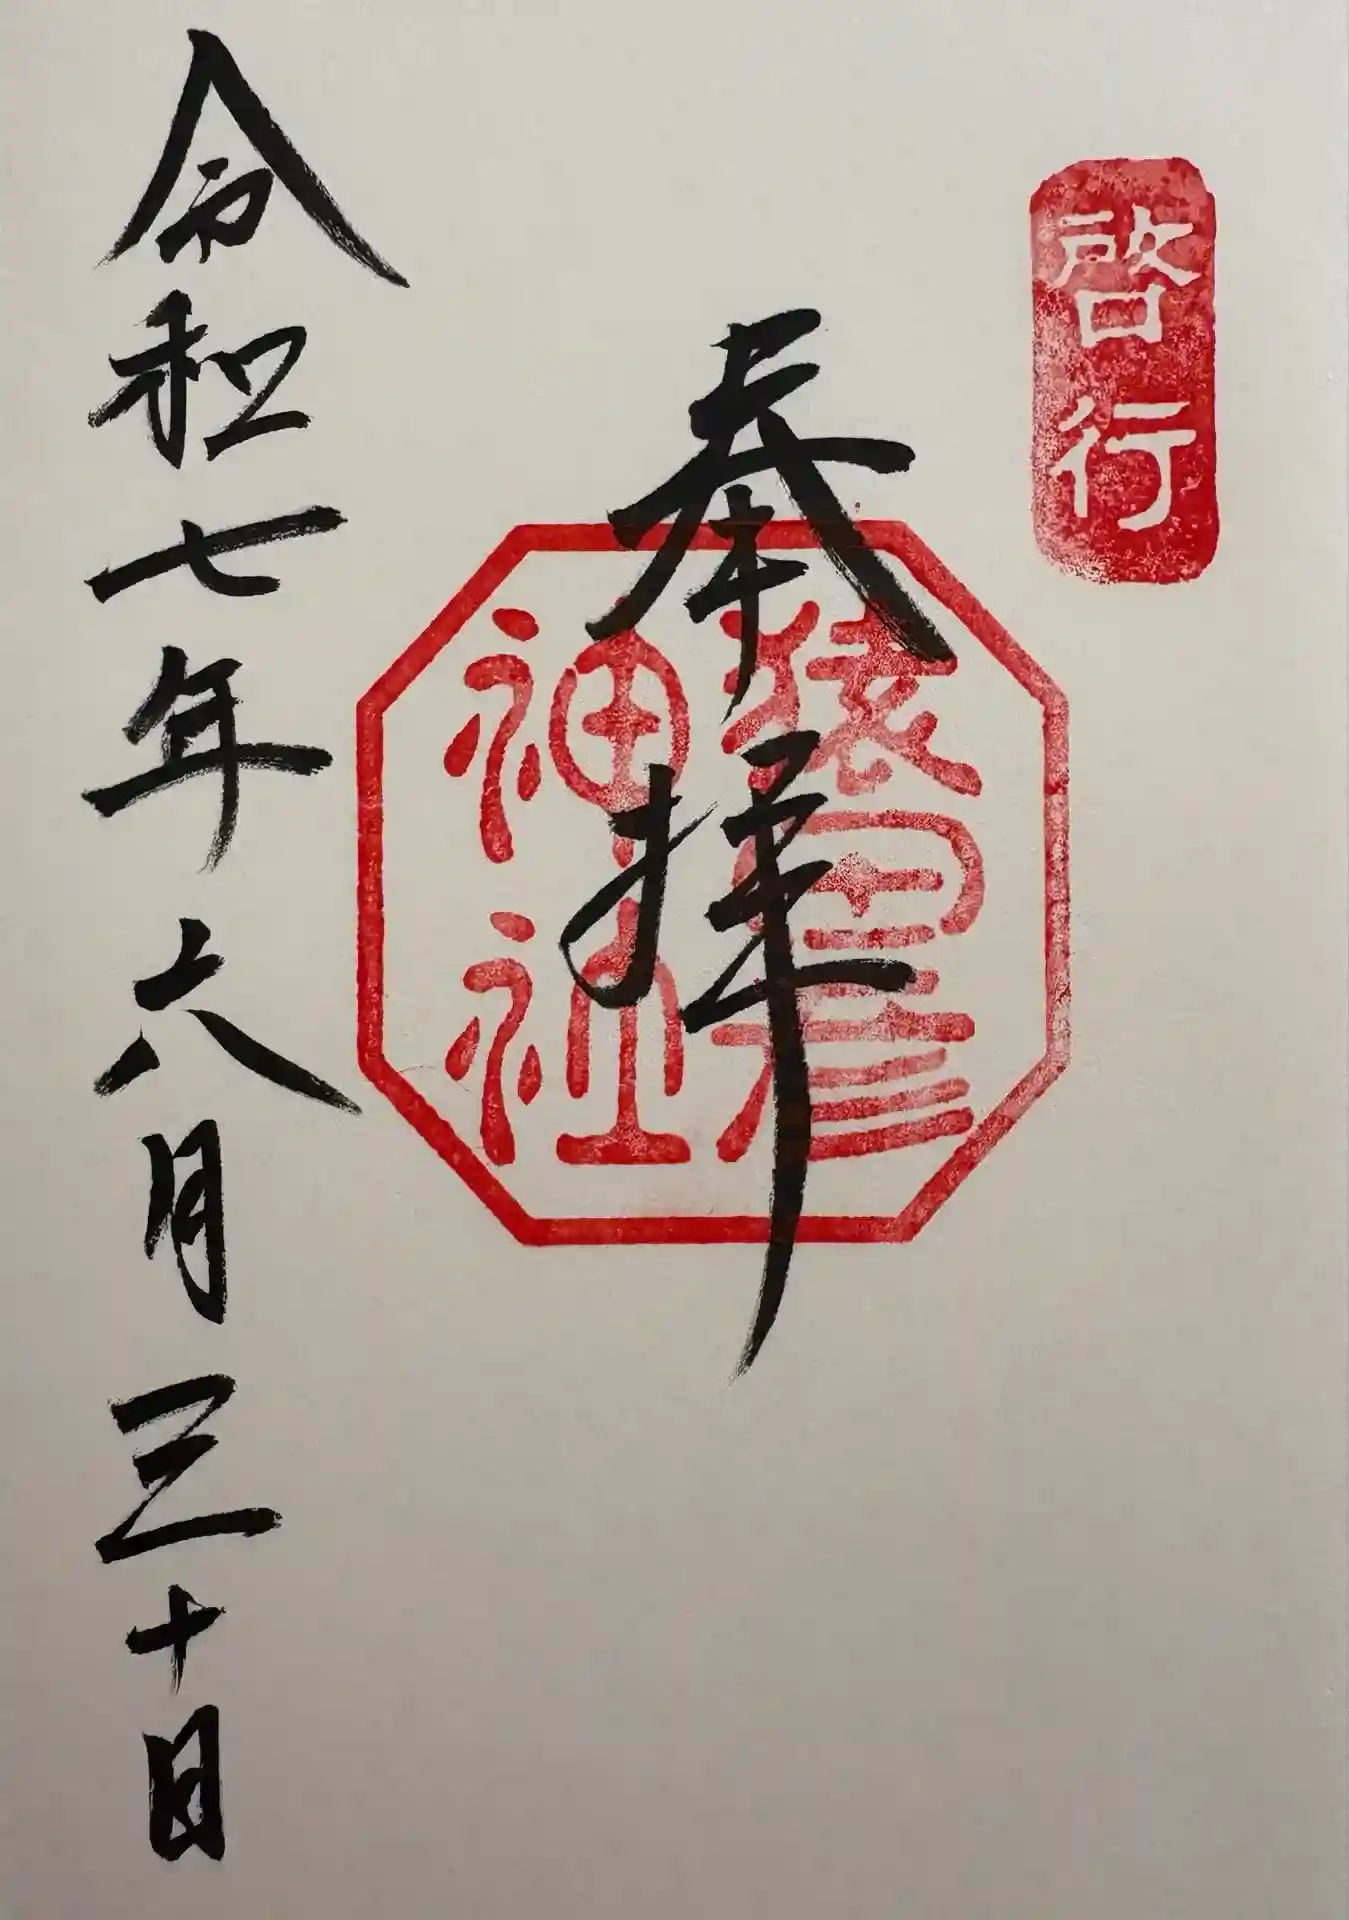 啓行
奉拝
猿田彦
神社
令和七年六月三十日